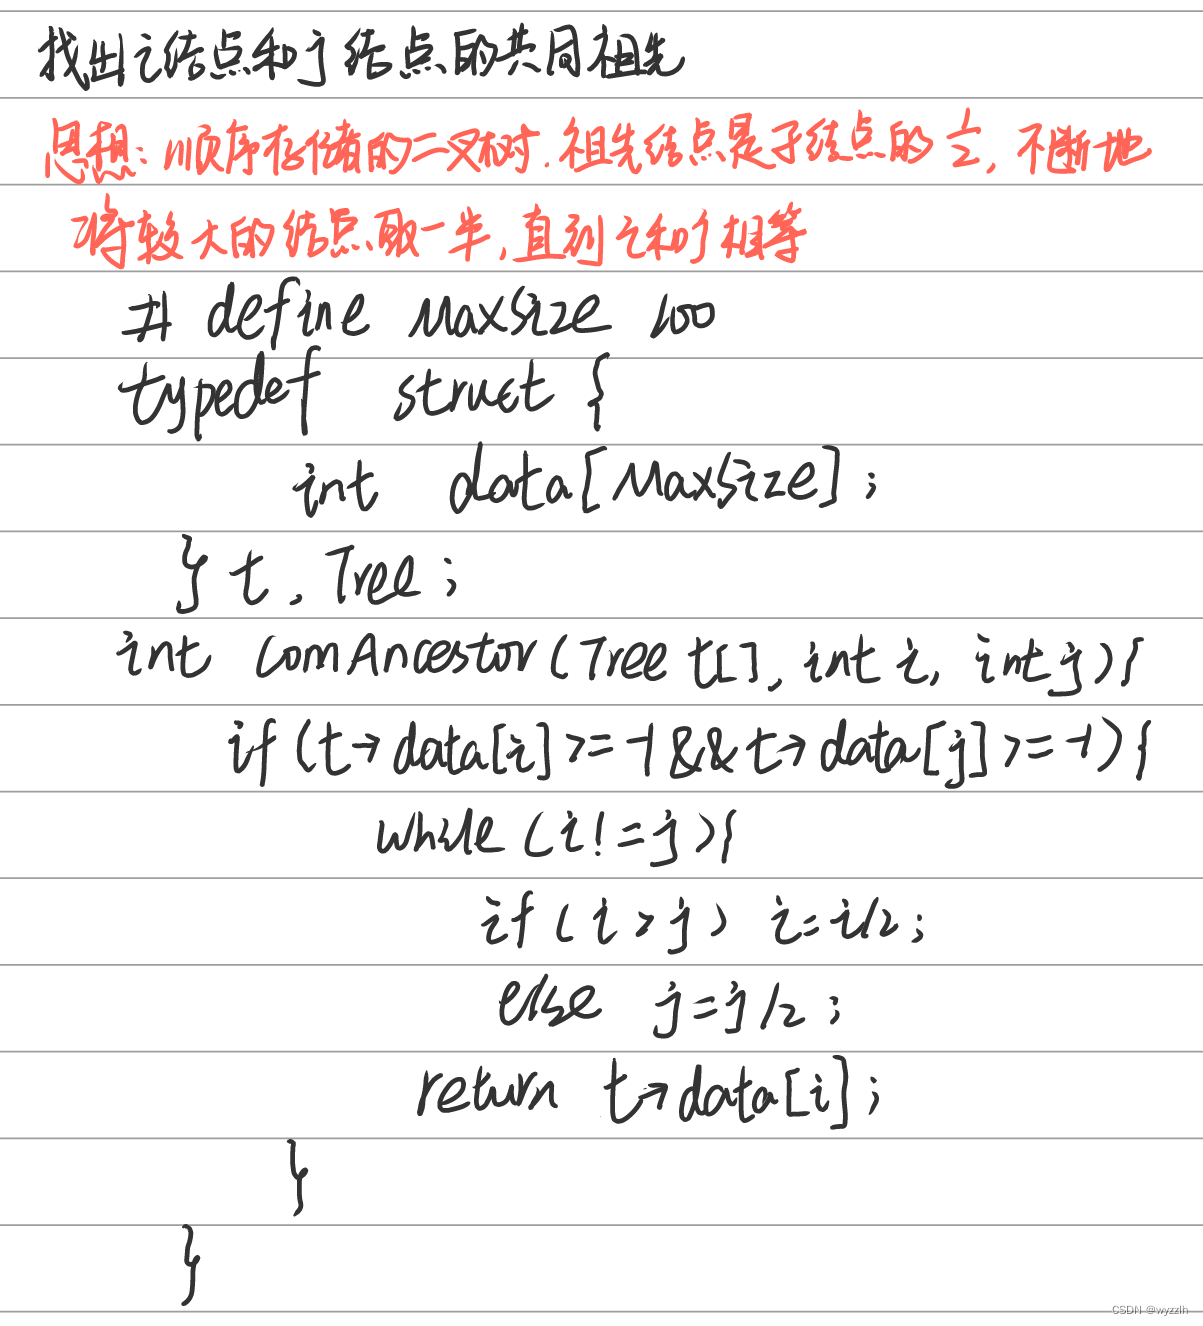 找出i结点和j结点的共同祖先
思想：顺序存储的二叉树．祖先结点是子结点的1/2，不断地
将较大的结点取一半，直到i和j相等
# define MaxSize 100
typedef struct {
int data[MaxSize];
} t, Tree;
int ComAncestor(Tree t[], int i, int j){
if(t→data[i]>=-1&&t→data[j]>=-1){
while(i!=j){
if(i>j) i=i/2;
else j=j/2;
return t→data[i];
}
}
CSDN @wyzzlh